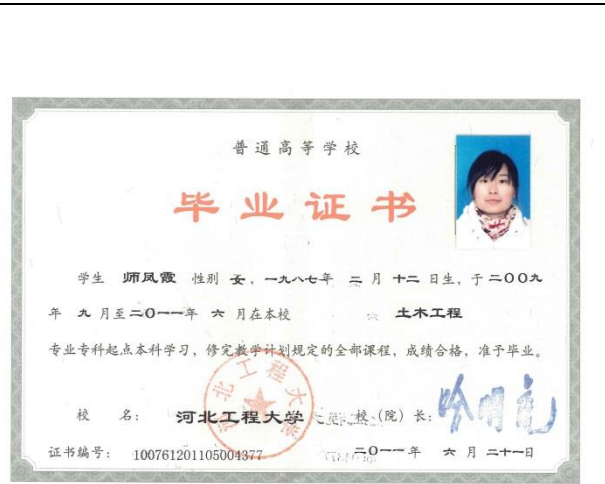 普通高等学校
毕业证书
学生 师凤霞 性别 女，一九八七年 二 月 十二 日生，于二〇〇九
年 九 月至二〇一一年 六 月在本校 土木工程
专业专科起点本科学习，修完教学计划规定的全部课程，成绩合格，准予毕业。
校 名： 河北工程大学 校（院）长：
证书编号： 100761201105004377 二〇一一年 六 月 二十一日
河北工程大学